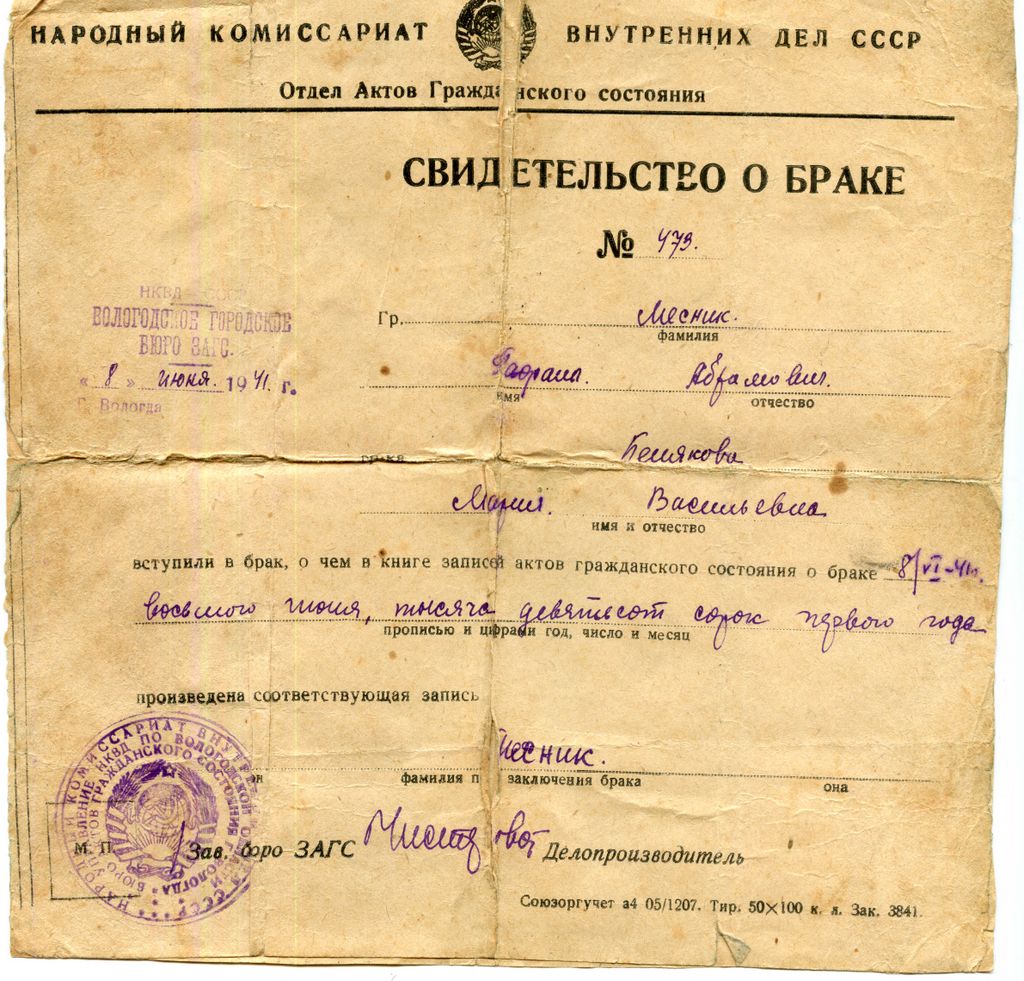 НАРОДНЫЙ КОМИССАРИАТ ВНУТРЕННИХ ДЕЛ СССР
Отдел Актов Гражданского состояния
СВИДЕТЕЛЬСТВО О БРАКЕ
№ 473.
НКВД СССР
ВОЛОГОДСКОЕ ГОРОДСКОЕ
БЮРО ЗАГС.
« 8 » июня. 1941 г.
Г. Вологда
Гр. Месник.
фамилия
Абрамович.
имя отчество
гр-ка
Мария. Васильевна
имя и отчество
вступили в брак, о чем в книге записей актов гражданского состояния о браке 8/VI-41г.
восьмого июня, тысяча девятьсот сорок первого года
прописью и цифрами год, число и месяц
произведена соответствующая запись
Месник.
он фамилия п заключения брака она
М. П. Зав. бюро ЗАГС Делопроизводитель
Союзоргучет а4 05/1207. Тир. 50×100 к. я. Зак. 3841.
НАРОДНЫЙ КОМИССАРИАТ ВНУТРЕННИХ ДЕЛ СССР